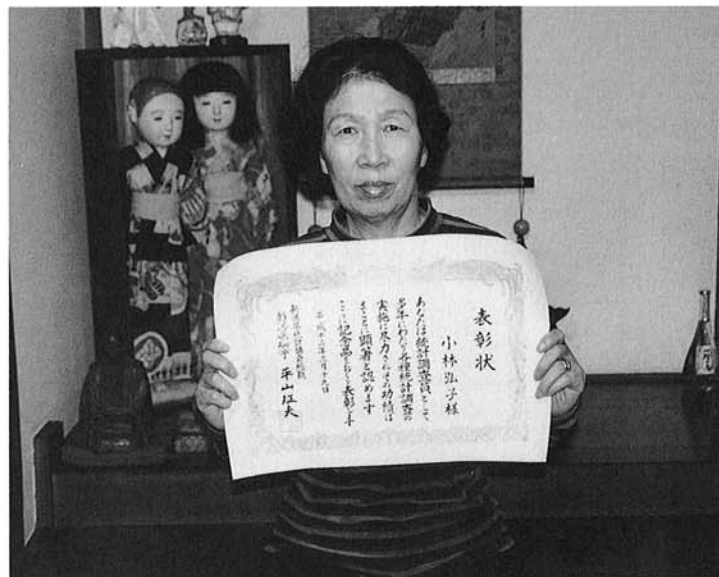 表彰状
小林弘子様
あなたは統計調査員として、
多年にわたり各種統計調査の
実施に尽力されその功績は
まことに顕著と認めます
ここに記念品をおくり表彰します
平成十二年三月十九日
新潟県統計協会総裁
新潟県知事 平山征夫